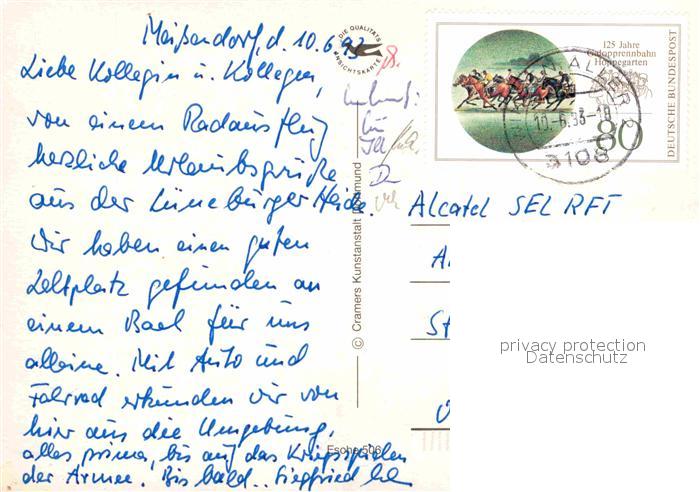 Meißendorf, d. 10.6.93
Liebe Kollegin u. Kollegen,
von einem Radausflug
herzliche Urlaubsgrüße
aus der Lüneburger Heide.
Wir haben einen guten
Zeltplatz gefunden an
einem Bach für uns
alleine. Mit Auto und
Fahrrad erkunden wir von
hier aus die Umgebung,
alles prima, bis auf das Kriegsspielen
der Armee. Bis bald.. Siegfried
DIE QUALITÄTS
ANSICHTSKARTE
© Cramers Kunstanstalt Dortmund
Esohe 506
125 Jahre
Galopprennbahn
Hoppegarten
80
DEUTSCHE BUNDESPOST
10.-6.93-18
3108
Alcatel SEL RFT
privacy protection
Datenschutz